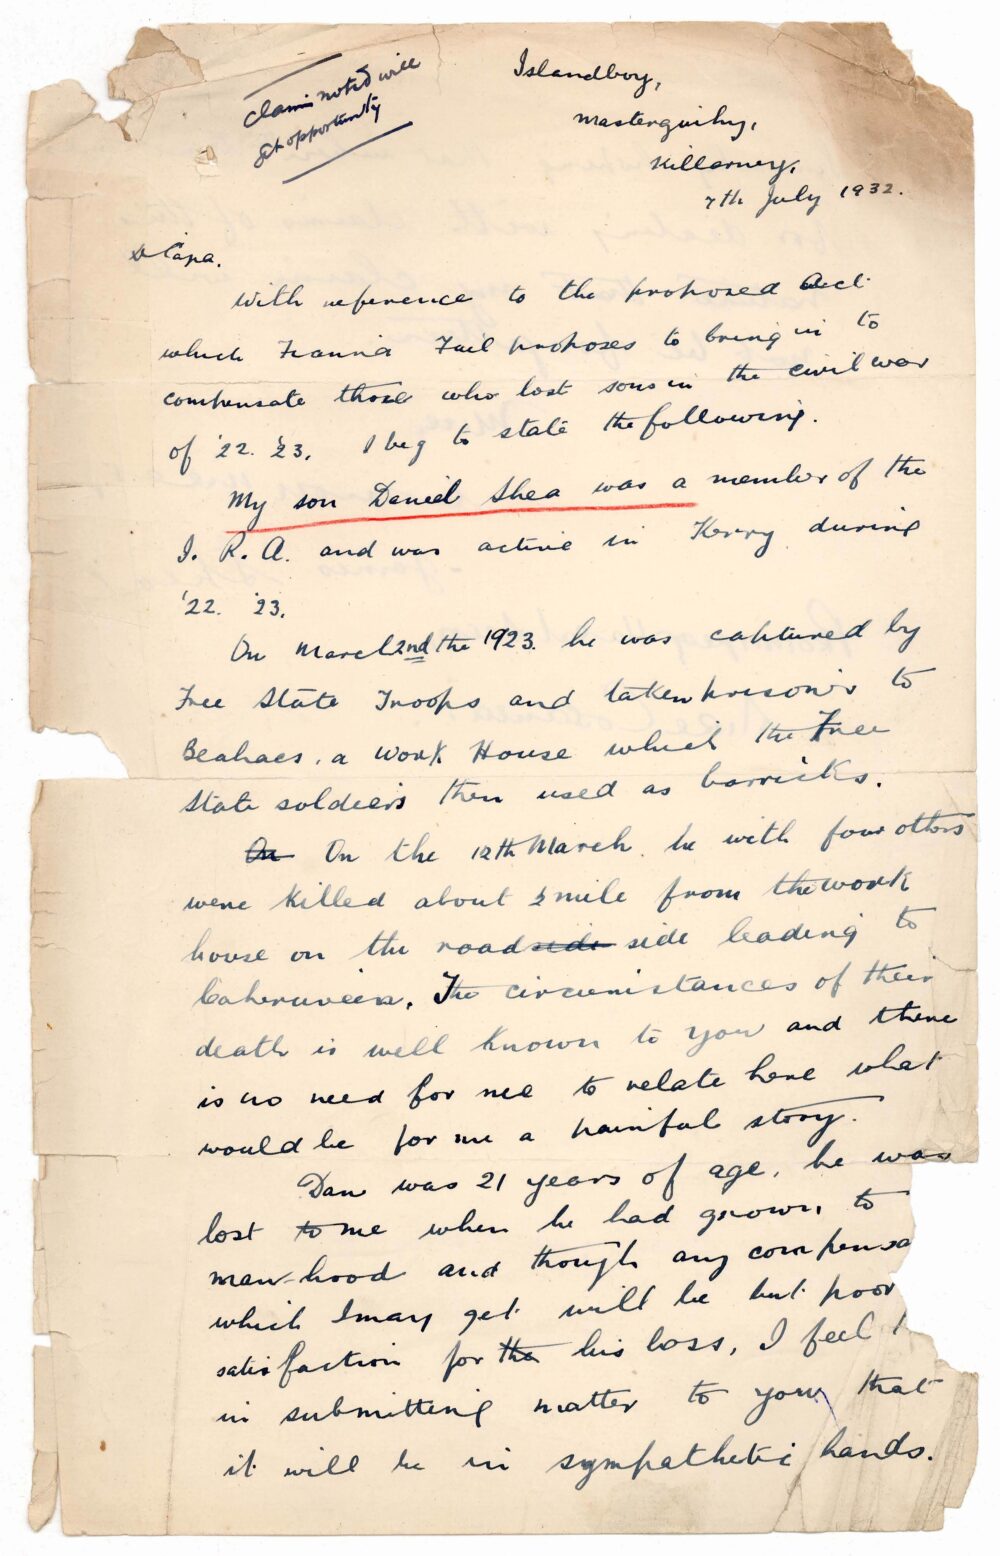 Claim noted will
at opportunity
Islandboy,
Mastergeeihy,
Killarney,
7th July 1932.
A Cara.
With reference to the proposed Act
which Fianna Fail proposes to bring in to
compensate those who lost sons in the civil war
of '22. '23. I beg to state the following.
My son Daniel Shea was a member of the
I. R. A. and was active in Kerry during
'22. '23.
On March 2nd the 1923. he was captured by
Free State Troops and taken prisoner to
Beahaes, a Work House which the Free
State soldiers then used as barricks.
On On the 12th March he with four others
were killed about ½ mile from the work
house on the road side side leading to
Caherciveen. The circumstances of their
death is well known to you and there
is no need for me to relate here what
would be for me a painful story.
Dan was 21 years of age, he was
lost to me when he had grown to
man-hood and though any compensa
which I may get will be but poor
satisfaction for the his loss, I feel
in submitting matter to you, that
it will be in sympathetic hands.